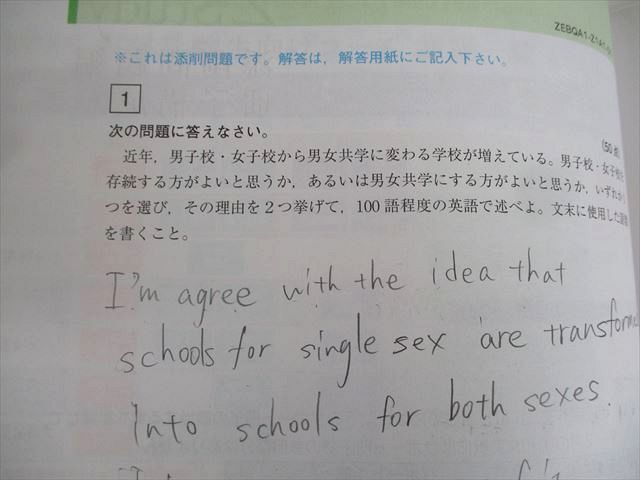 ZEBQA1-Z1A1
※これは添削問題です。解答は，解答用紙にご記入下さい。
1
次の問題に答えなさい。
(50点)
近年，男子校・女子校から男女共学に変わる学校が増えている。男子校・女子校を
存続する方がよいと思うか，あるいは男女共学にする方がよいと思うか，いずれか
つを選び，その理由を2つ挙げて，100語程度の英語で述べよ。文末に使用した語数
を書くこと。
I'm agree with the idea that
schools for single sex are transform
into schools for both sexes.